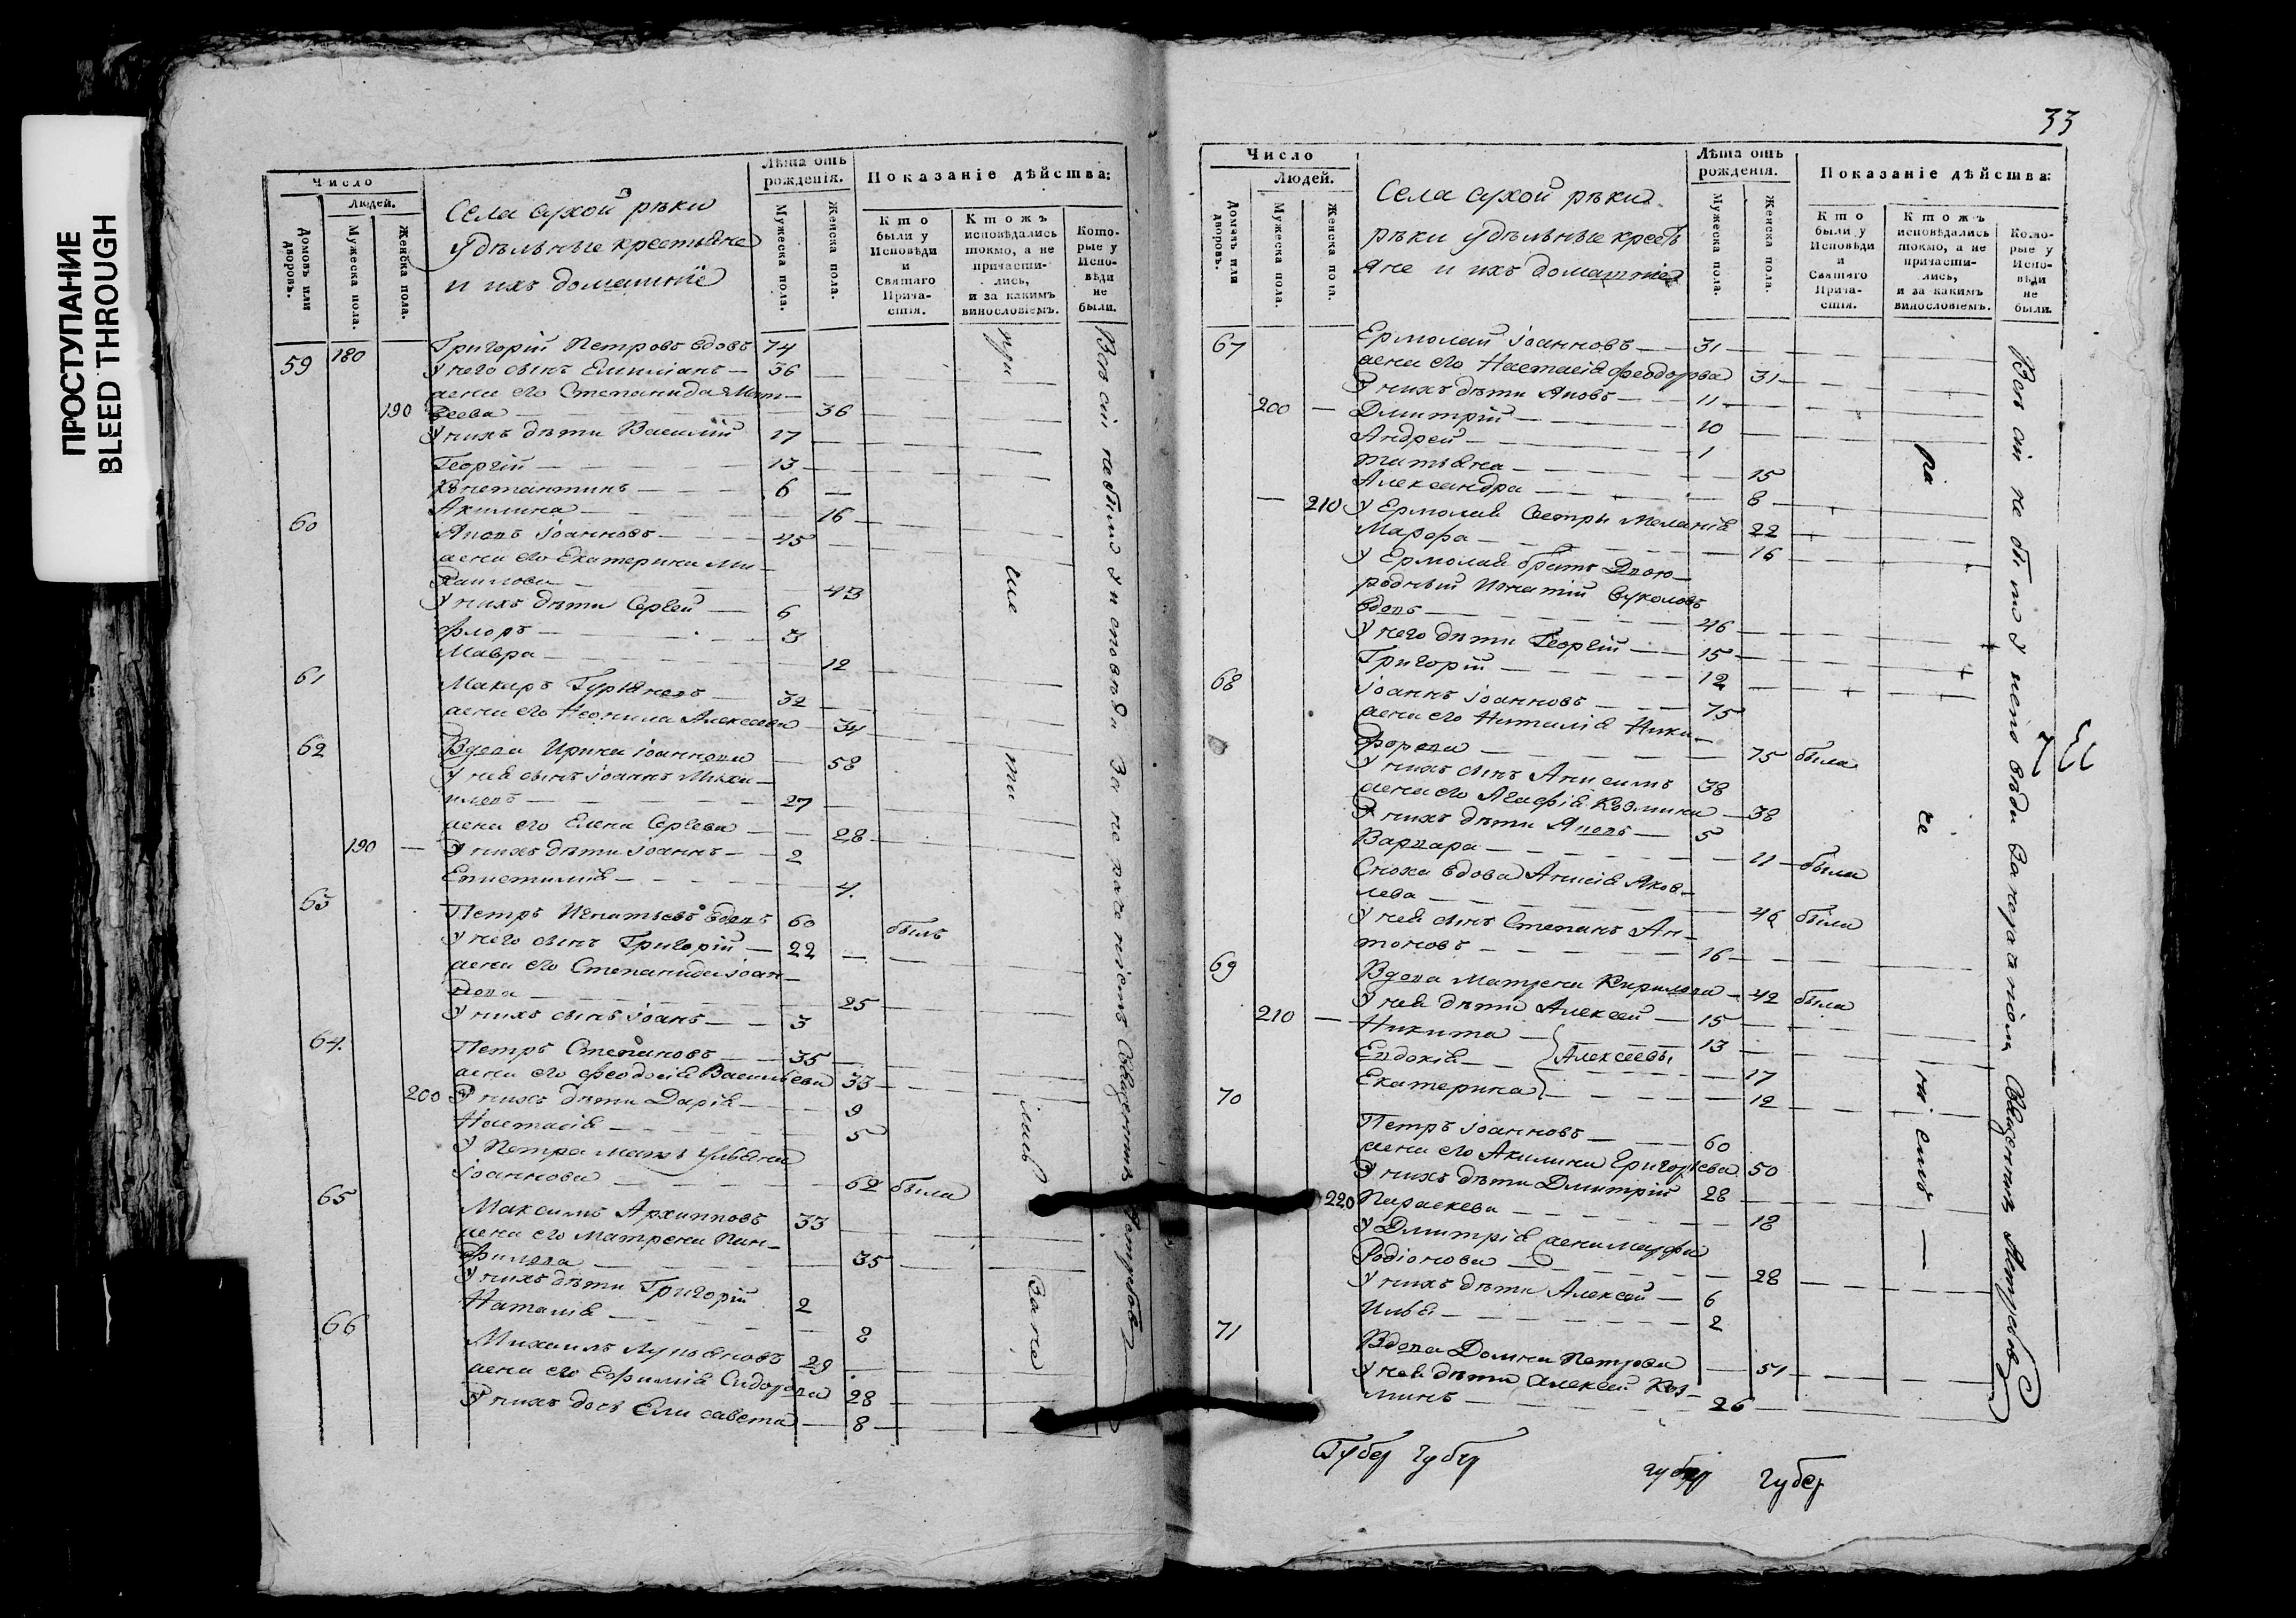 ПРОСТУПАНИЕ
BLEED THROUGH
Число
Людей.
Домовъ или дворовъ.
Мужеска пола.
Женска пола.
Села сухой рѣки
удѣльные крестьяне
и ихъ домашнїе
Лѣта отъ рожденія.
Мужеска пола.
Женска пола.
Показаніе дѣйства:
Кто были у Исповѣди и Святаго Прича-стія.
Ктожъ исповѣдались токмо, а не причасти-лись, и за какимъ винословіемъ.
Кото-рые у Испо-вѣди не были.
59 180 Григорій Петровъ вдовъ 74
У него сынъ Емиліанъ 36
жена его Степанида Мат-
190 веева 36
У нихъ дѣти Василій 17
Георгій 13
Константинъ 6
Акилина 16
60 Яковъ Іоанновъ 45
жена его Екатерина Ми-
хаилова 43
У нихъ дѣти Сергѣй 6
Флоръ 3
Мавра 12
61 Макаръ Гурьяновъ 32
жена его Неонила Алексеева 34
62 Вдова Ирина Іоаннова 58
У ней сынъ Іоаннъ Михаи-
ловъ 27
жена его Елена Сергѣева 28
190 У нихъ дѣти Іоаннъ 2
Епистимія 4.
63 Петръ Игнатьевъ вдовъ 60 былъ
У него сынъ Григорій 22
жена его Степанида Іоан-
нова 25
У нихъ сынъ Іоанъ 3
64. Петръ Степановъ 35
жена его Феодосія Васильева 33
200 У нихъ дѣти Дарія 9
Настасія 5
У Петра мать Ульяна
Іоаннова 62 была
65 Максимъ Архиповъ 33
жена его Матрена Пан-
филова 35
У нихъ дѣти Григорій 2
Наталія 8
66 Михаилъ Лукьяновъ 29
жена его Евфимія Сидорова 28
У нихъ дочь Елисавета 8
при
ча
ти
лись
за не
Всѣ сіи не были у исповѣди за не раченіемъ Священникъ Петровъ
33
Число
Людей.
Домовъ или дворовъ.
Мужеска пола.
Женска пола.
Села сухой рѣки
рѣки удѣльные кресть
яне и ихъ домашніе
Лѣта отъ рожденія.
Мужеска пола.
Женска пола.
Показаніе дѣйства:
Кто были у Исповѣди и Святаго Прича-стія.
Ктожъ исповѣдались токмо, а не причасти-лись, и за какимъ винословіемъ.
Кото-рые у Испо-вѣди не были.
67 Ермолай Іоанновъ 31
жена его Настасія Феодорова 31
У нихъ дѣти Яковъ 11
200 Дмитрій 10
Андрей 1
Татьяна 15
Александра 8
210 У Ермолая Сестры Меланія 22
Марфа 16
У Ермолая братъ Двою-
родный Игнатій Вуколовъ
вдовъ 46
У него дѣти Георгій 15
Григорій 12
68 Іоаннъ Іоанновъ 75
жена его Наталія Ники-
форова 75 была
У нихъ сынъ Анисимъ 38
жена его Агафія Козмина 38
У нихъ дѣти Яковъ 5
Варвара 11 была
Сноха вдова Анисія Яков-
лева 46 была
У ней сынъ Степанъ Ан-
тоновъ 16
69 Вдова Матрена Кирилова 42 была
У ней дѣти Алексей 15
210 Никита Алексеевы 13
Евдокія 17
Екатерина 12
70 Петръ Іоанновъ 60
жена его Акилина Григорьева 50
У нихъ дѣти Дмитрій 28
220 Параскева 18
У Дмитрія жена Марфа
Родіонова 28
У нихъ дѣти Алексей 6
Илья 2
71 Вдова Домна Петрова 51
У ней дѣти Алексей Коз-
минъ 26
ра
че
ні
емъ
Всѣ сіи не были у исповѣди за нераченіемъ Священникъ Петровъ
Губер губер
губер губер